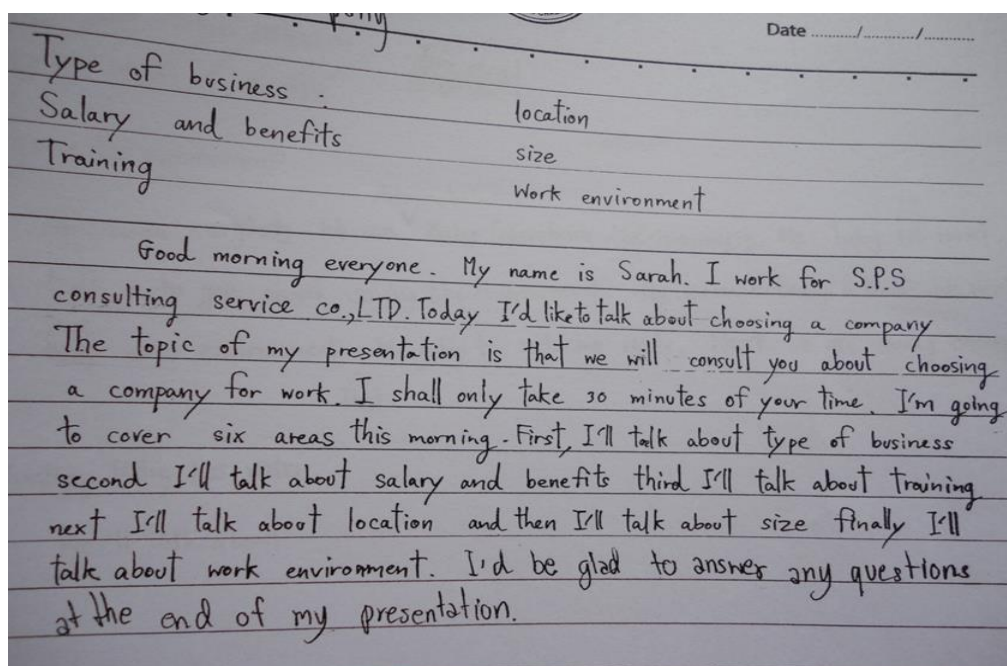 Date ............/............/............
Type of business :
location
Salary and benefits
size
Training
Work environment
Good morning everyone. My name is Sarah. I work for S.P.S
consulting service co.,LTD. Today I'd like to talk about choosing a company
The topic of my presentation is that we will consult you about choosing
a company for work. I shall only take 30 minutes of your time. I'm going
to cover six areas this morning. First, I'll talk about type of business
second I'll talk about salary and benefits third I'll talk about training
next I'll talk about location and then I'll talk about size finally I'll
talk about work environment. I'd be glad to answer any questions
at the end of my presentation.